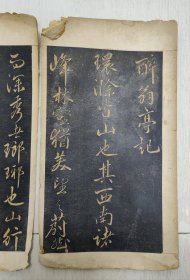 醉翁亭記
環滁皆山也其西南諸
峰林壑猶美望之蔚然
而深秀者瑯琊也山行